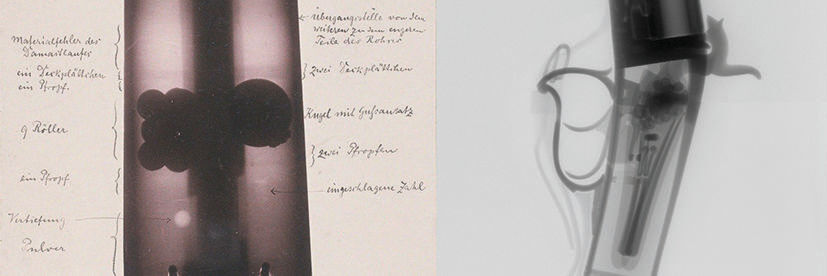 Materialfehler des
Damastlaufes
ein Deckplättchen
ein Pfropf.
9 Röller
ein Pfropf.
Vertiefung
Pulver
Übergangsstelle von dem
weiteren zu dem engeren
Teile des Rohres
zwei Deckplättchen
Kugel mit Gußansatz
zwei Pfropfen
eingeschlagene Zahl